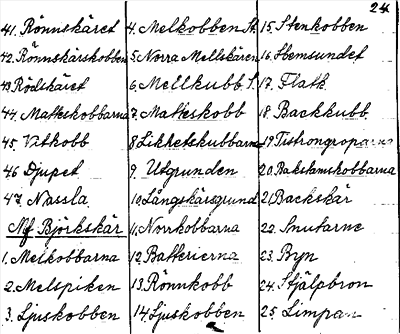 24
41. Rönnskäret
42. Rönnskärskobben
43 Rödskäret
44. Matteskobbarna
45 Vitkobb
46 Djupet
47. Nassla
Nf Björkskär
1. Melkobbarna
2. Melspiken
3. Ljuskobben
4. Melkobben St.
5. Norra Mellskären
6. Mellkubb S.
7. Matteskobb
8 Likketskubbarna
9. Utgrunden
10. Långskärsgrund
11. Norrkobbarna
12 Batterierna
13. Rönnkobb
14. Ljuskobben
15. Stenkobben
16. Hemsundet
17. Flath.
18. Backkubb
19 Tistrongroparna
20. Bakstamskobbarna
21 Backskär
22. Snutarne
23. Byn
24. Stjälpbron
25. Limpan